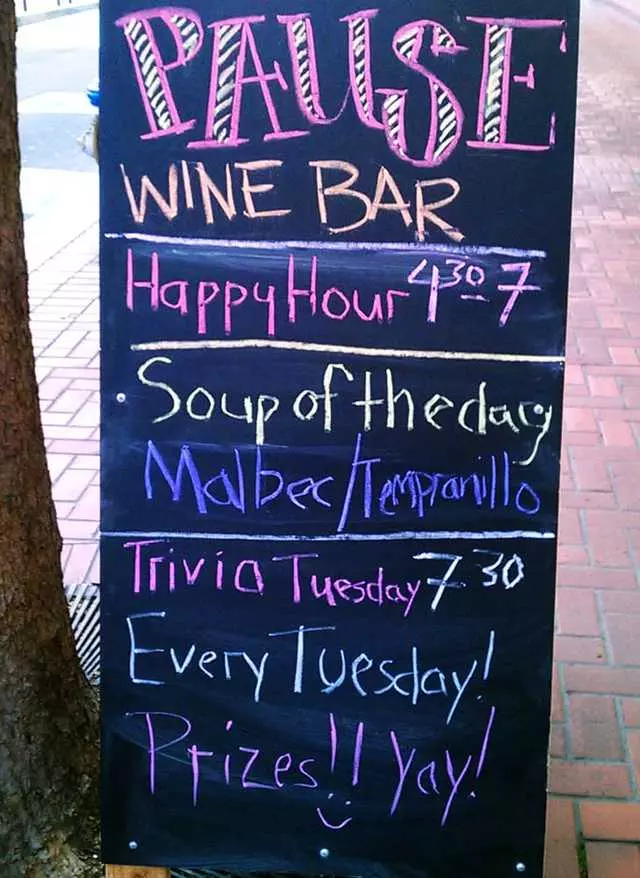 PAUSE
WINE BAR
Happy Hour 4³⁰-7
Soup of the day
Malbec/Tempranillo
Trivia Tuesday 7 30
Every Tuesday!
Prizes!! Yay!